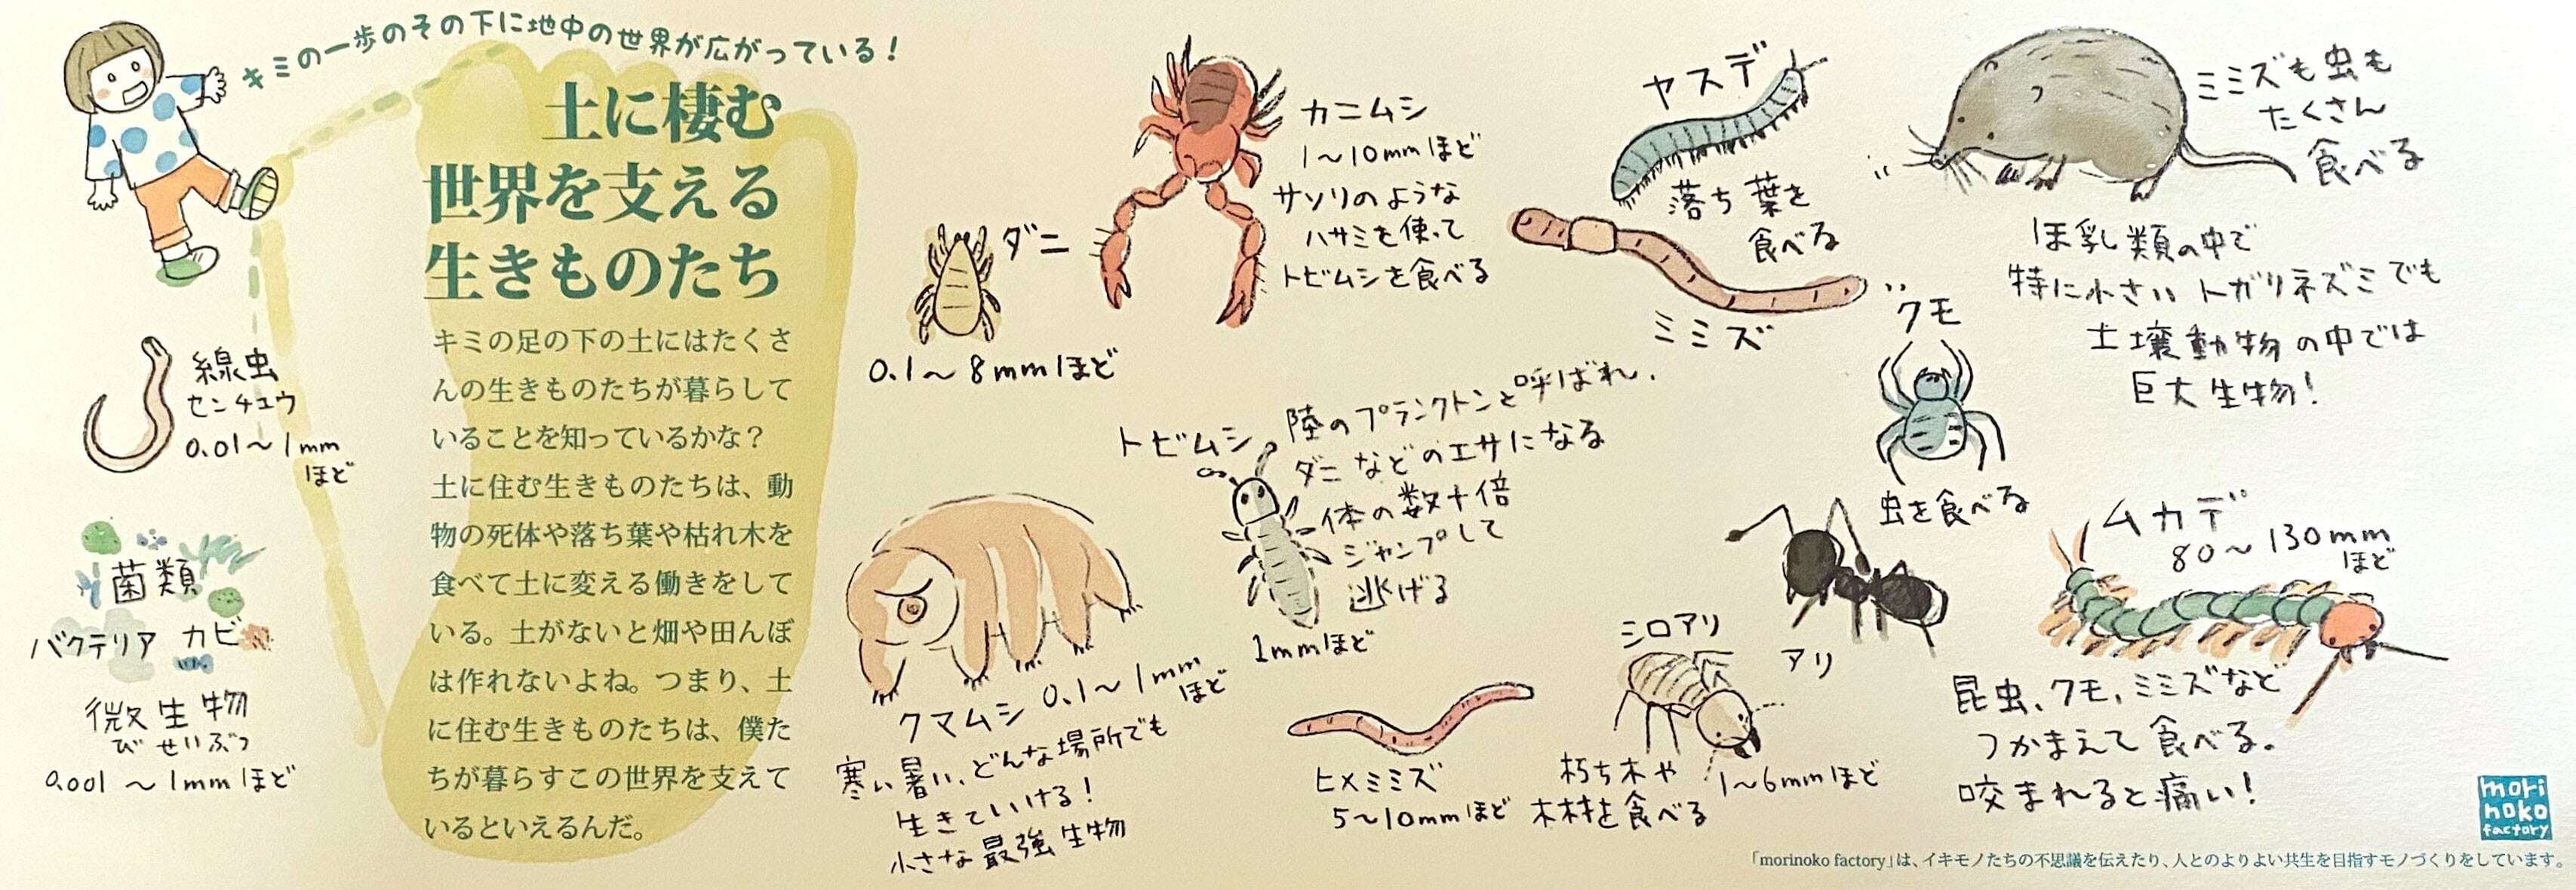 キミの一歩のその下に地中の世界が広がっている！
土に棲む
世界を支える
生きものたち
キミの足の下の土にはたくさ
んの生きものたちが暮らして
いることを知っているかな？
土に住む生きものたちは、動
物の死体や落ち葉や枯れ木を
食べて土に変える働きをして
いる。土がないと畑や田んぼ
は作れないよね。つまり、土
に住む生きものたちは、僕た
ちが暮らすこの世界を支えて
いるといえるんだ。
線虫
センチュウ
0.01～1mm
ほど
菌類
バクテリア カビ
微生物
びせいぶつ
0.001～1mmほど
ダニ
0.1～8mmほど
カニムシ
1～10mmほど
サソリのような
ハサミを使って
トビムシを食べる
トビムシ
陸のプランクトンと呼ばれ、
ダニなどのエサになる
体の数十倍
ジャンプして
逃げる
1mmほど
クマムシ 0.1～1mm
ほど
寒い暑い、どんな場所でも
生きていける！
小さな最強生物
ヒメミミズ
5～10mmほど
ヤスデ
落ち葉を
食べる
ミミズ
クモ
虫を食べる
アリ
シロアリ
朽ち木や
木材を食べる
1～6mmほど
ミミズも虫も
たくさん
食べる
ほ乳類の中で
特に小さいトガリネズミでも
土壌動物の中では
巨大生物！
ムカデ
80～130mm
ほど
昆虫、クモ、ミミズなど
つかまえて食べる。
咬まれると痛い！
mori
noko
factory
「morinoko factory」は、イキモノたちの不思議を伝えたり、人とのよりよい共生を目指すモノづくりをしています。